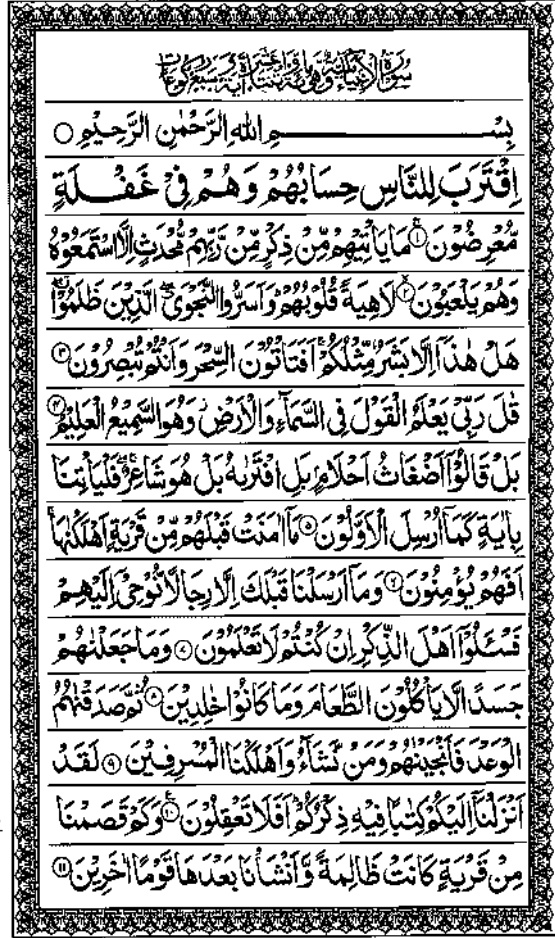 سُوْرَةُ الْاَنْۢبِيَآءِ مَكِّيَّةٌ وَّهِيَ مِائَةٌ وَّاثْنَتَا عَشْرَةَ اٰيَةً وَّسَبْعُ رُكُوْعَاتٍ
بِسْــــــــمِ اللهِ الرَّحْمٰنِ الرَّحِيْمِ ○
اِقْتَرَبَ لِلنَّاسِ حِسَابُهُمْ وَهُمْ فِيْ غَفْلَةٍ
مُّعْرِضُوْنَ ۚ۝۱ مَا يَاْتِيْهِمْ مِّنْ ذِكْرٍ مِّنْ رَّبِّهِمْ مُّحْدَثٍ اِلَّا اسْتَمَعُوْهُ
وَهُمْ يَلْعَبُوْنَ ۙ۝۲ لَاهِيَةً قُلُوْبُهُمْ ؕ وَاَسَرُّوا النَّجْوَى ۖۗ الَّذِيْنَ ظَلَمُوْا ۖۗ
هَلْ هٰذَاۤ اِلَّا بَشَرٌ مِّثْلُكُمْ ۚ اَفَتَاْتُوْنَ السِّحْرَ وَاَنْتُمْ تُبْصِرُوْنَ ۝۳
قٰلَ رَبِّيْ يَعْلَمُ الْقَوْلَ فِي السَّمَآءِ وَالْاَرْضِ ؗ وَهُوَ السَّمِيْعُ الْعَلِيْمُ ۝۴
بَلْ قَالُوْۤا اَضْغَاثُ اَحْلَامٍۭ بَلِ افْتَرٰىهُ بَلْ هُوَ شَاعِرٌ ۖۚ فَلْيَاْتِنَا
بِاٰيَةٍ كَمَاۤ اُرْسِلَ الْاَوَّلُوْنَ ۝۵ مَاۤ اٰمَنَتْ قَبْلَهُمْ مِّنْ قَرْيَةٍ اَهْلَكْنٰهَا ۚ
اَفَهُمْ يُؤْمِنُوْنَ ۝۶ وَمَاۤ اَرْسَلْنَا قَبْلَكَ اِلَّا رِجَالًا نُّوْحِيْۤ اِلَيْهِمْ
فَسْـَٔلُوْۤا اَهْلَ الذِّكْرِ اِنْ كُنْتُمْ لَا تَعْلَمُوْنَ ۝۷ وَمَا جَعَلْنٰهُمْ
جَسَدًا لَّا يَاْكُلُوْنَ الطَّعَامَ وَمَا كَانُوْا خٰلِدِيْنَ ۝۸ ثُمَّ صَدَقْنٰهُمُ
الْوَعْدَ فَاَنْجَيْنٰهُمْ وَمَنْ نَّشَآءُ وَاَهْلَكْنَا الْمُسْرِفِيْنَ ۝۹ لَقَدْ
اَنْزَلْنَاۤ اِلَيْكُمْ كِتٰبًا فِيْهِ ذِكْرُكُمْ ؕ اَفَلَا تَعْقِلُوْنَ ۝۱۰ وَكَمْ قَصَمْنَا
مِنْ قَرْيَةٍ كَانَتْ ظَالِمَةً وَّاَنْشَاْنَا بَعْدَهَا قَوْمًا اٰخَرِيْنَ ۝۱۱